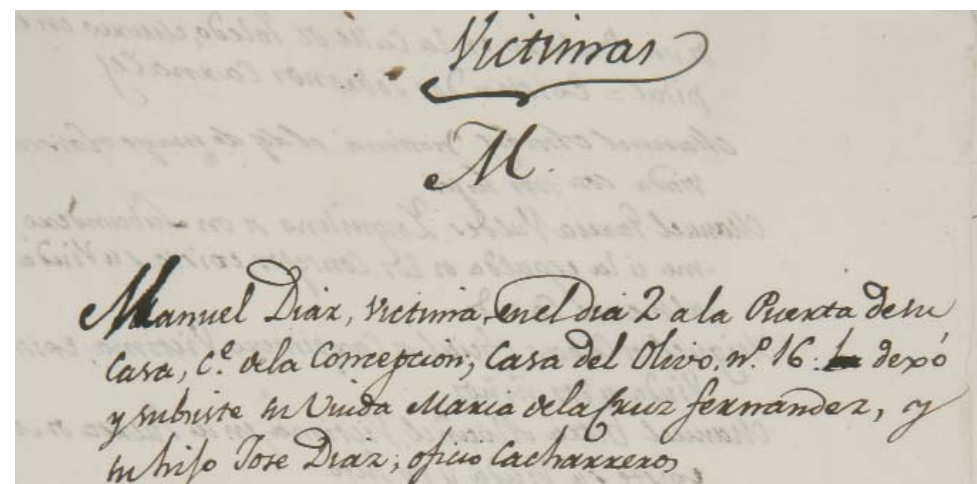 Victimas
M.
Manuel Diaz, victima, en el dia 2 a la Puerta de su
Casa, C.e dela Concepcion, Casa del Olivo, n.o 16. dexó
y subsiste su Viuda Maria dela Cruz fernandez, y
su hijo Jose Diaz, oficio Cacharreros